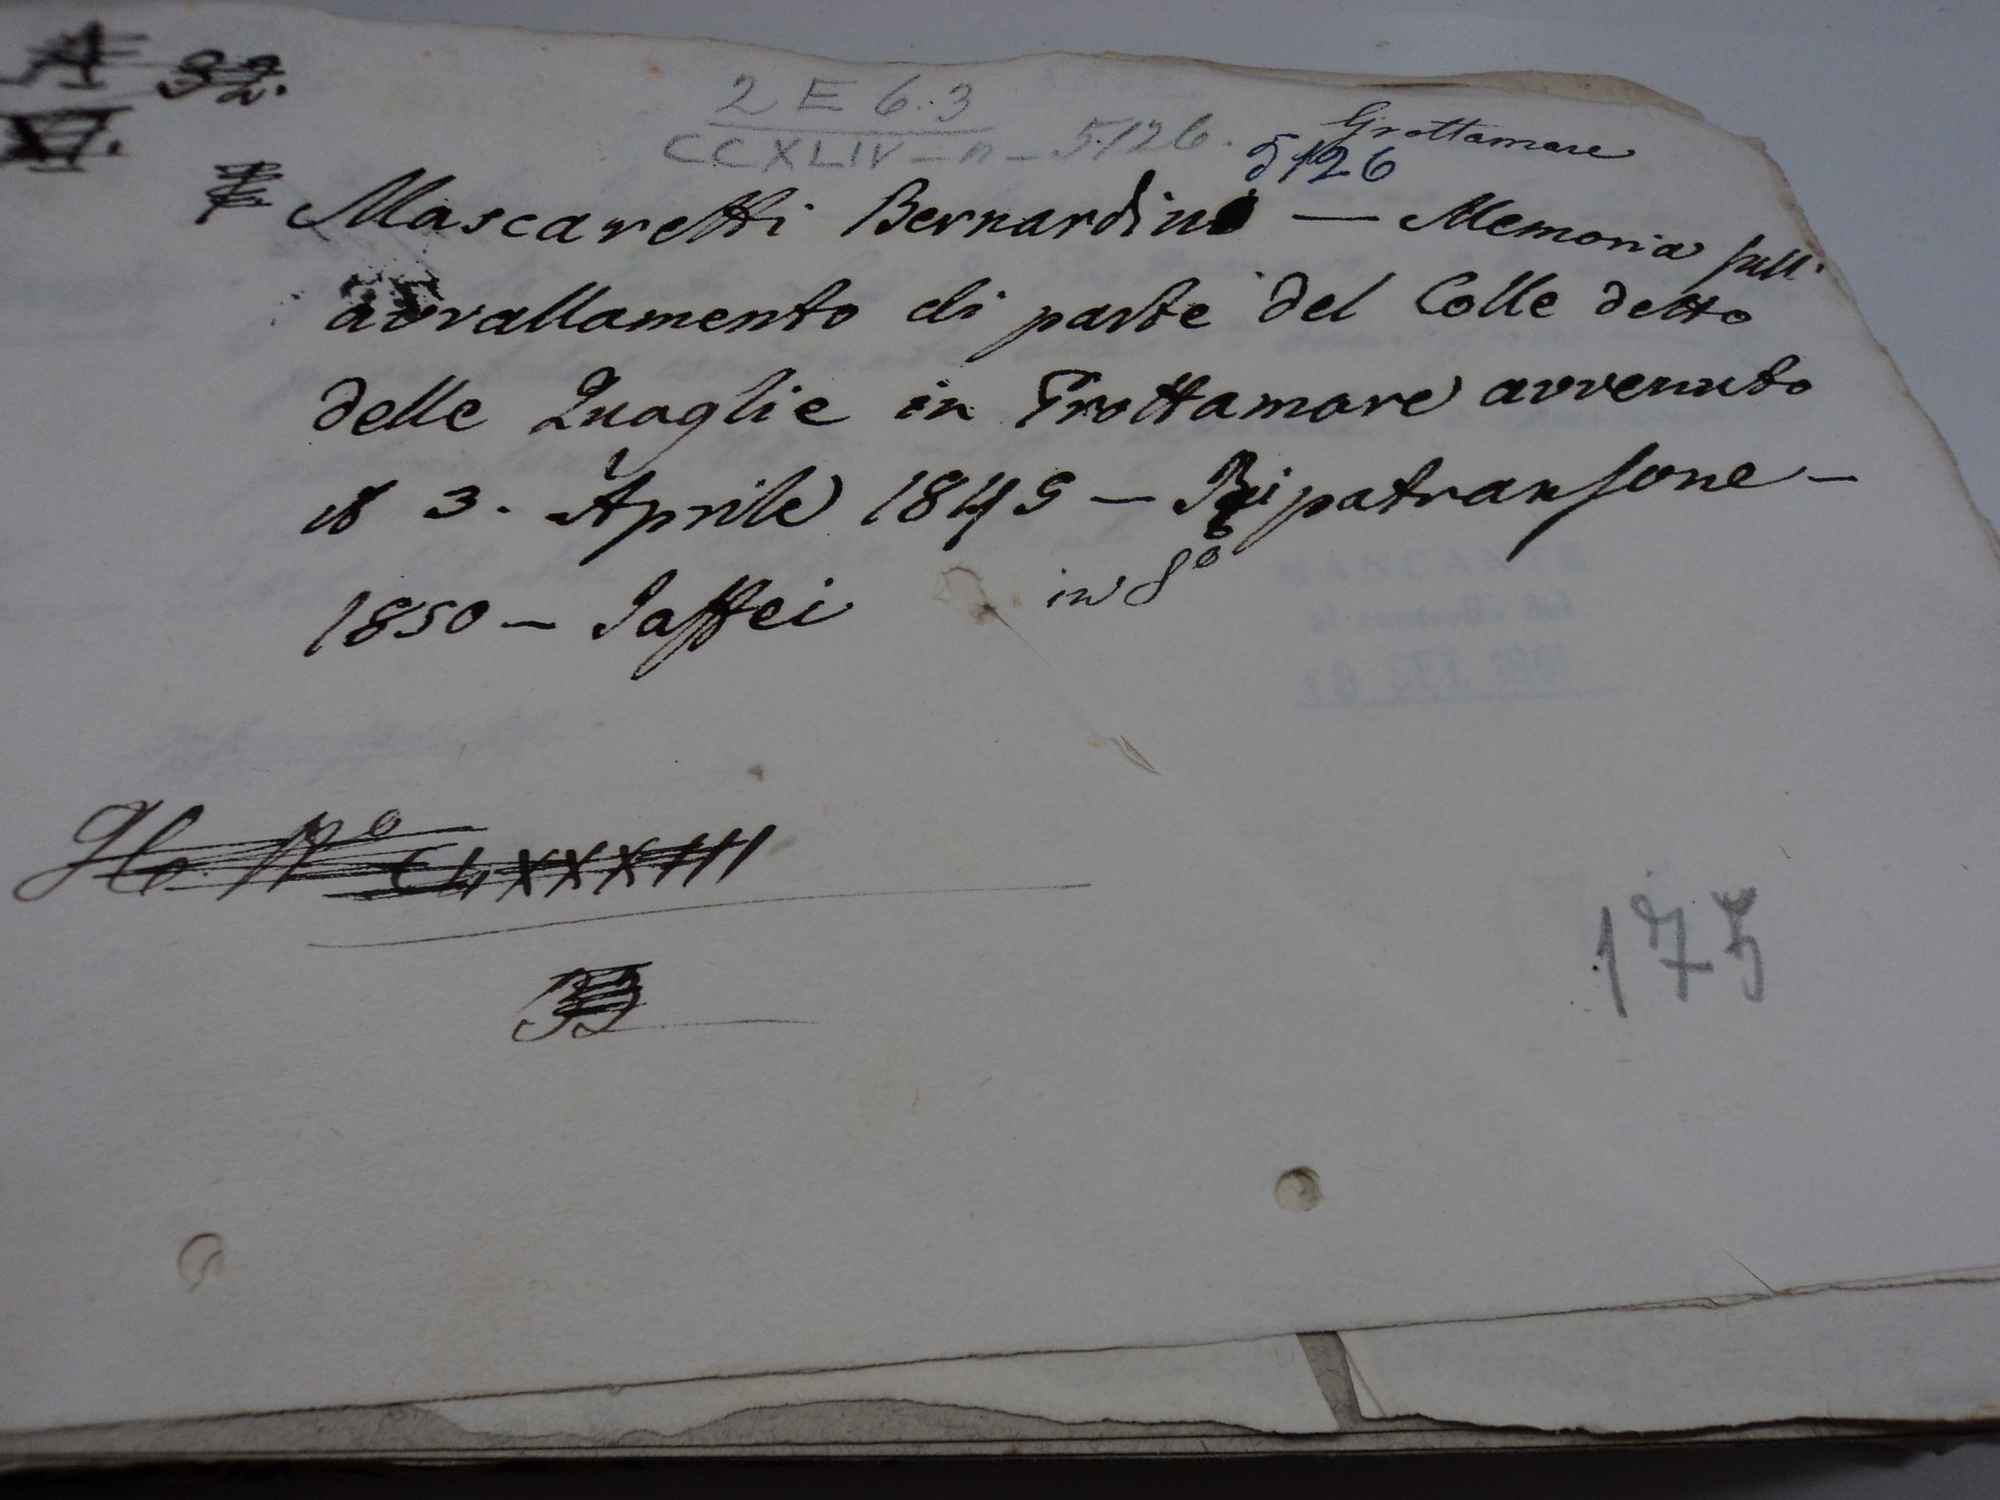 A 32.
XI.
2 E 6.3
CCXLIV - n - 5126.
Grottamare
5126
Mascaretti Bernardino — Memoria sull'
avvallamento di parte del Colle detto
delle Quaglie in Grottamare avvenuto
il 3. Aprile 1845 — Ripatransone —
1850 — Jaffei in 8°
N° CLXXXIII
33
175